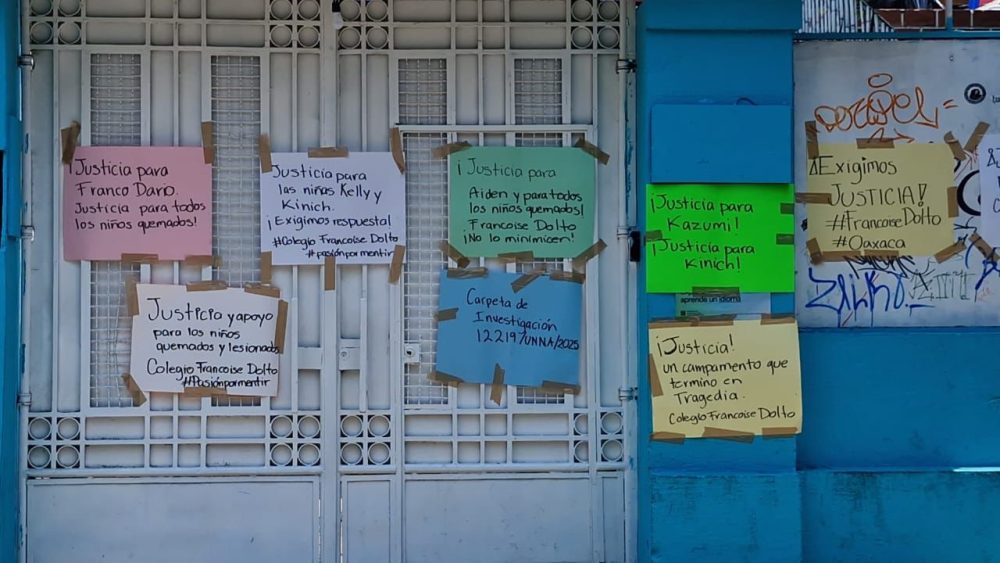 ¡Justicia para
Franco Darío.
Justicia para todos
los niños quemados!
Justicia para
las niñas Kelly y
Kinich.
¡Exigimos respuesta!
#Colegio Francoise Dolto
#pasiónpormentir
¡Justicia para
Aiden y para todos
los niños quemados!
Francoise Dolto
¡No lo minimicen!
¡Justicia para
Kazumi!
¡Justicia para
Kinich!
Exigimos
JUSTICIA!
#Francoise Dolto
#Oaxaca
Justicia y apoyo
para los niños
quemados y lesionados
Colegio Francoise Dolto
#Pasiónpormentir
Carpeta de
Investigación
12219/UNNA/2025
aprende un idioma
¡Justicia!
un campamento que
termino en
Tragedia.
Colegio Francoise Dolto